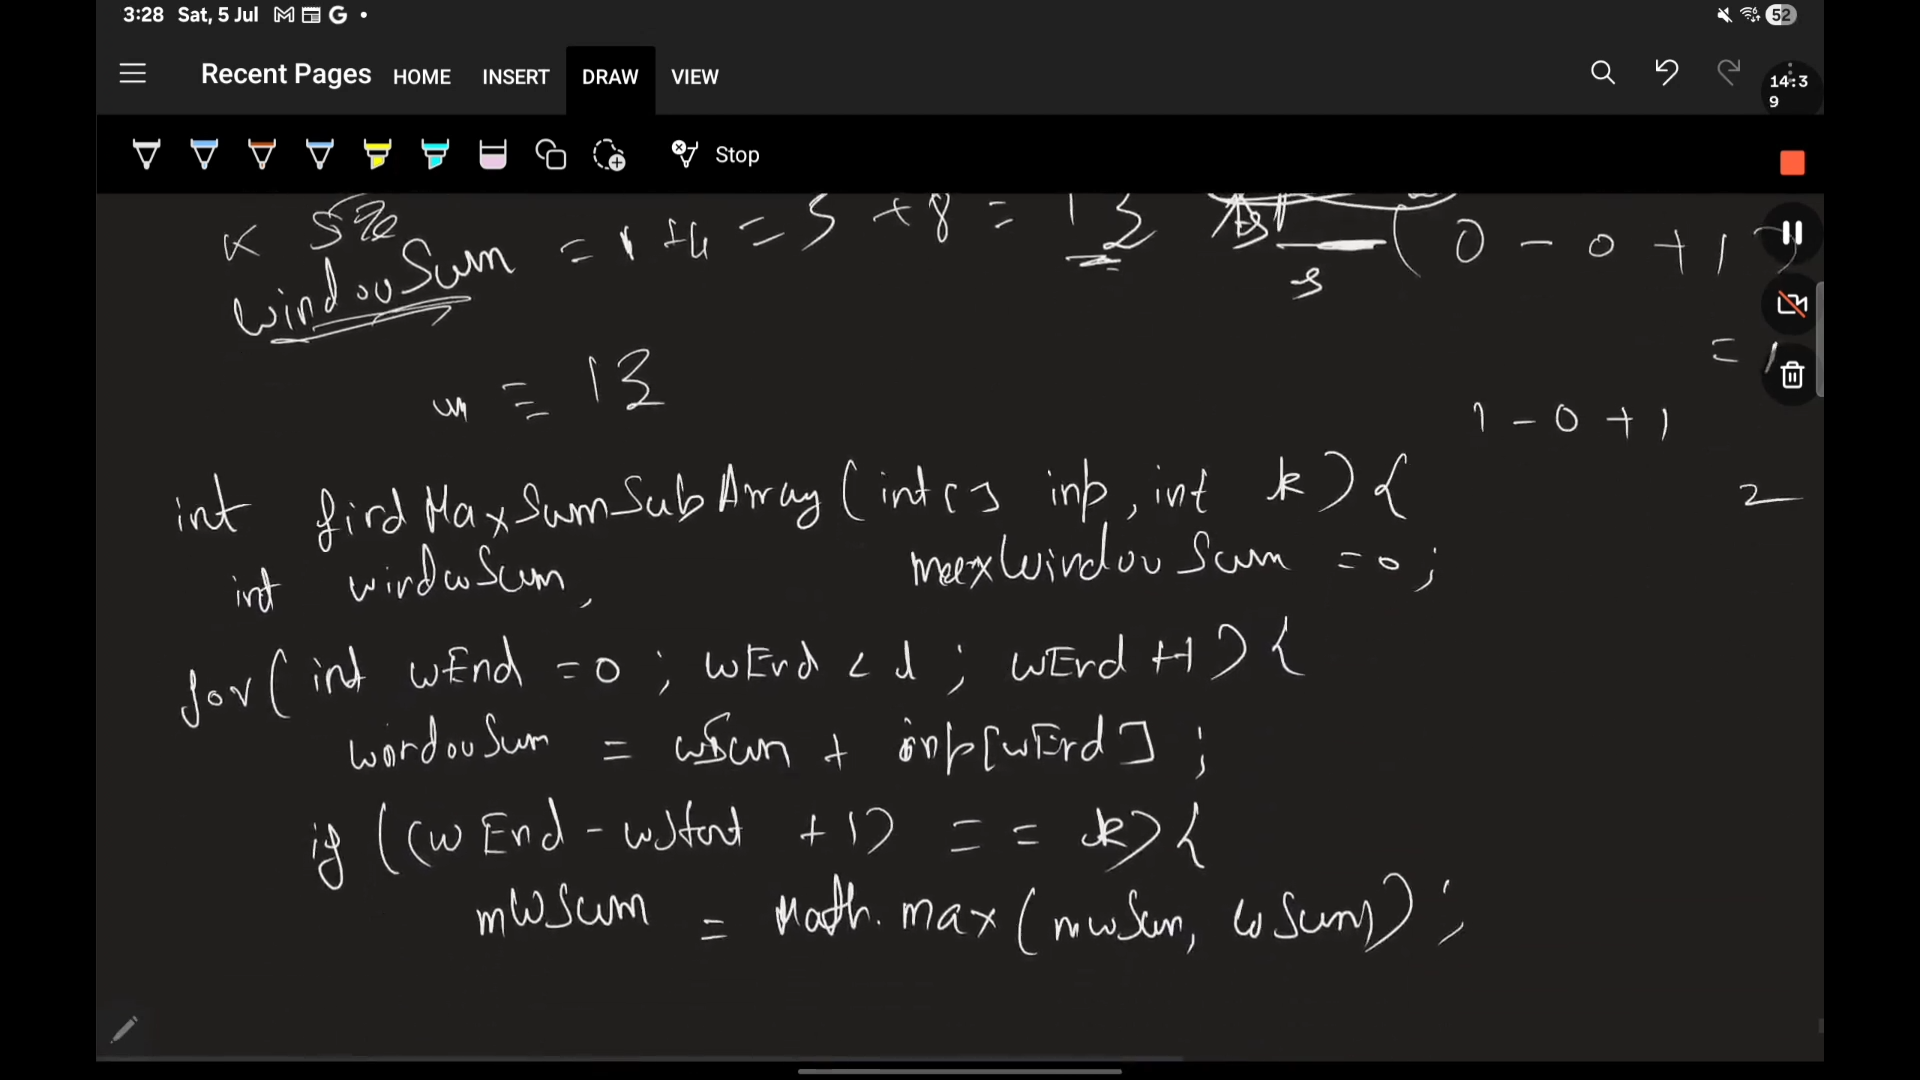 3:28 Sat, 5 Jul
52
Recent Pages HOME INSERT DRAW VIEW
14:3
9
Stop
K size
windowSum = 1 +4 = 5 + 8 = 13
(0 - 0 + 1)
= 1
= 13
1 - 0 + 1
2
int findMaxSumSubArray (int[] inp, int k) {
int windowSum, maxWindowSum = 0;
for( int wEnd = 0 ; wEnd < l ; wEnd ++) {
windowSum = wSum + inp[wEnd] ;
if ((wEnd - wStart + 1) == k) {
mwSum = Math.max (mwSum, wSum) ;